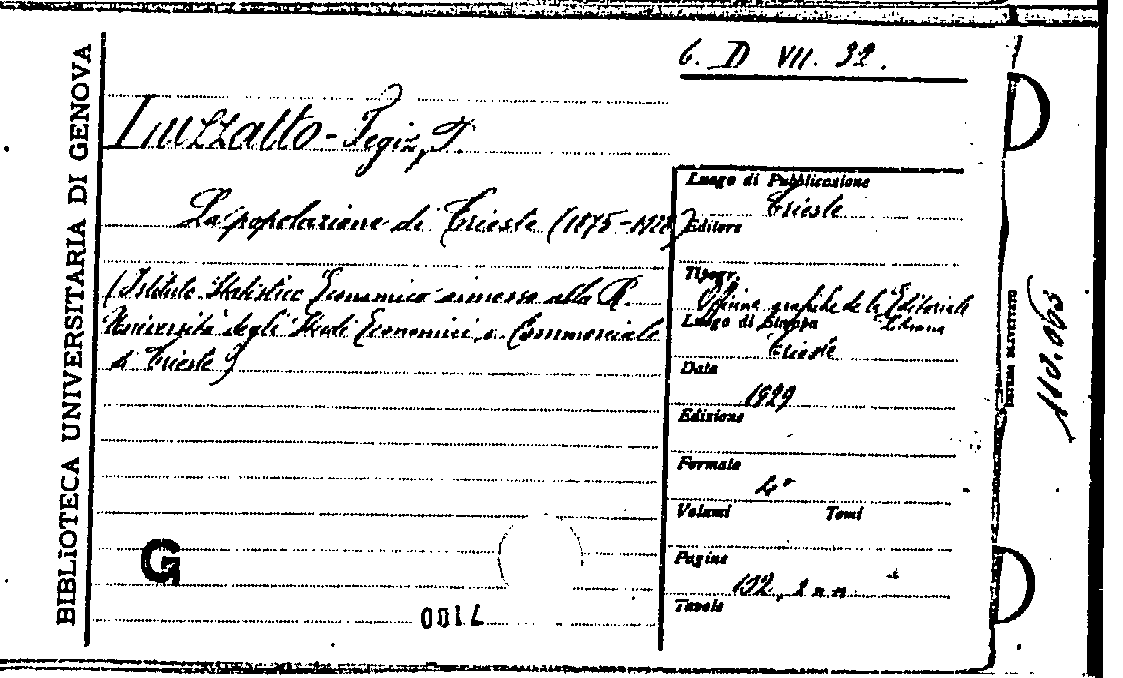 BIBLIOTECA UNIVERSITARIA DI GENOVA
6. D VII. 32.
Luzzatto-Fegiz, P.
La popolazione di Trieste (1875-1928)
(Istituto Statistico Economico annesso alla R.
Università degli Studi Economici e Commerciali
di Trieste)
Luogo di Pubblicazione
Trieste
Editore
Tipogr.
Officine grafiche de la Editoriale
Libraria
Luogo di Stampa
Trieste
Data
1929
Edizione
Formato
4°
Volumi Tomi
Pagine
192, 2 n n.
Tavole
G
7100